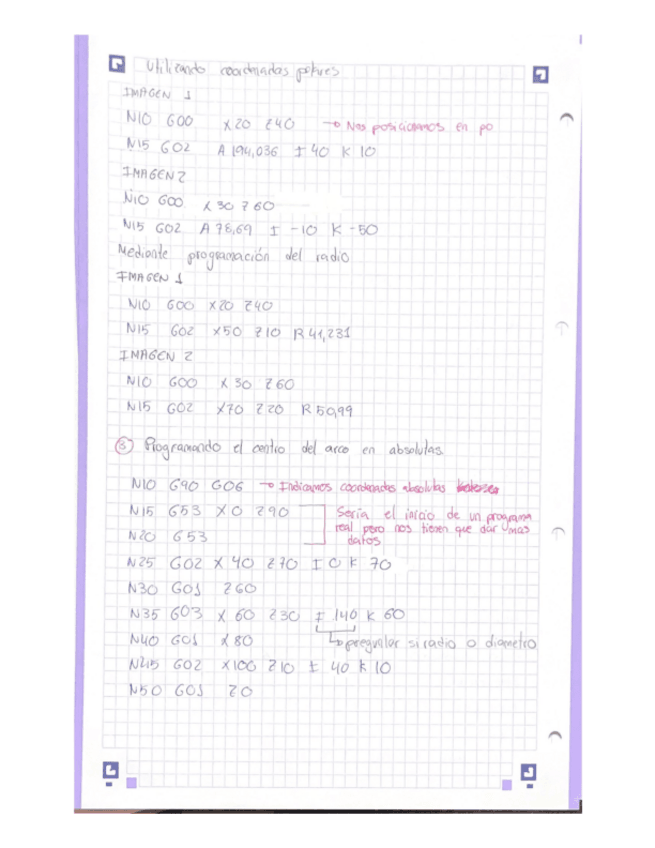 Utilizando coordenadas polares
IMAGEN 1
N10 G00 X20 Z40 → Nos posicionamos en po
N15 G02 A 194,036 I 40 K 10
IMAGEN 2
N10 G00 X 30 Z 60
N15 G02 A 78,69 I -10 K -50
Mediante programación del radio
IMAGEN 1
N10 G00 X20 Z40
N15 G02 X50 Z10 R 41,231
IMAGEN 2
N10 G00 X 30 Z60
N15 G02 X70 Z20 R 50,99
③ Programando el centro del arco en absolutas
N10 G90 G06 → Indicamos coordenadas absolutas
N15 G53 X0 Z90
N20 G53
Sería el inicio de un programa
real pero nos tienen que dar mas
datos
N25 G02 X 40 Z70 I 0 K 70
N30 G01 Z60
N35 G03 X 60 Z30 I 140 K 60
N40 G01 X80 → preguntar si radio o diametro
N45 G02 X100 Z10 I 40 K 10
N50 G01 Z0